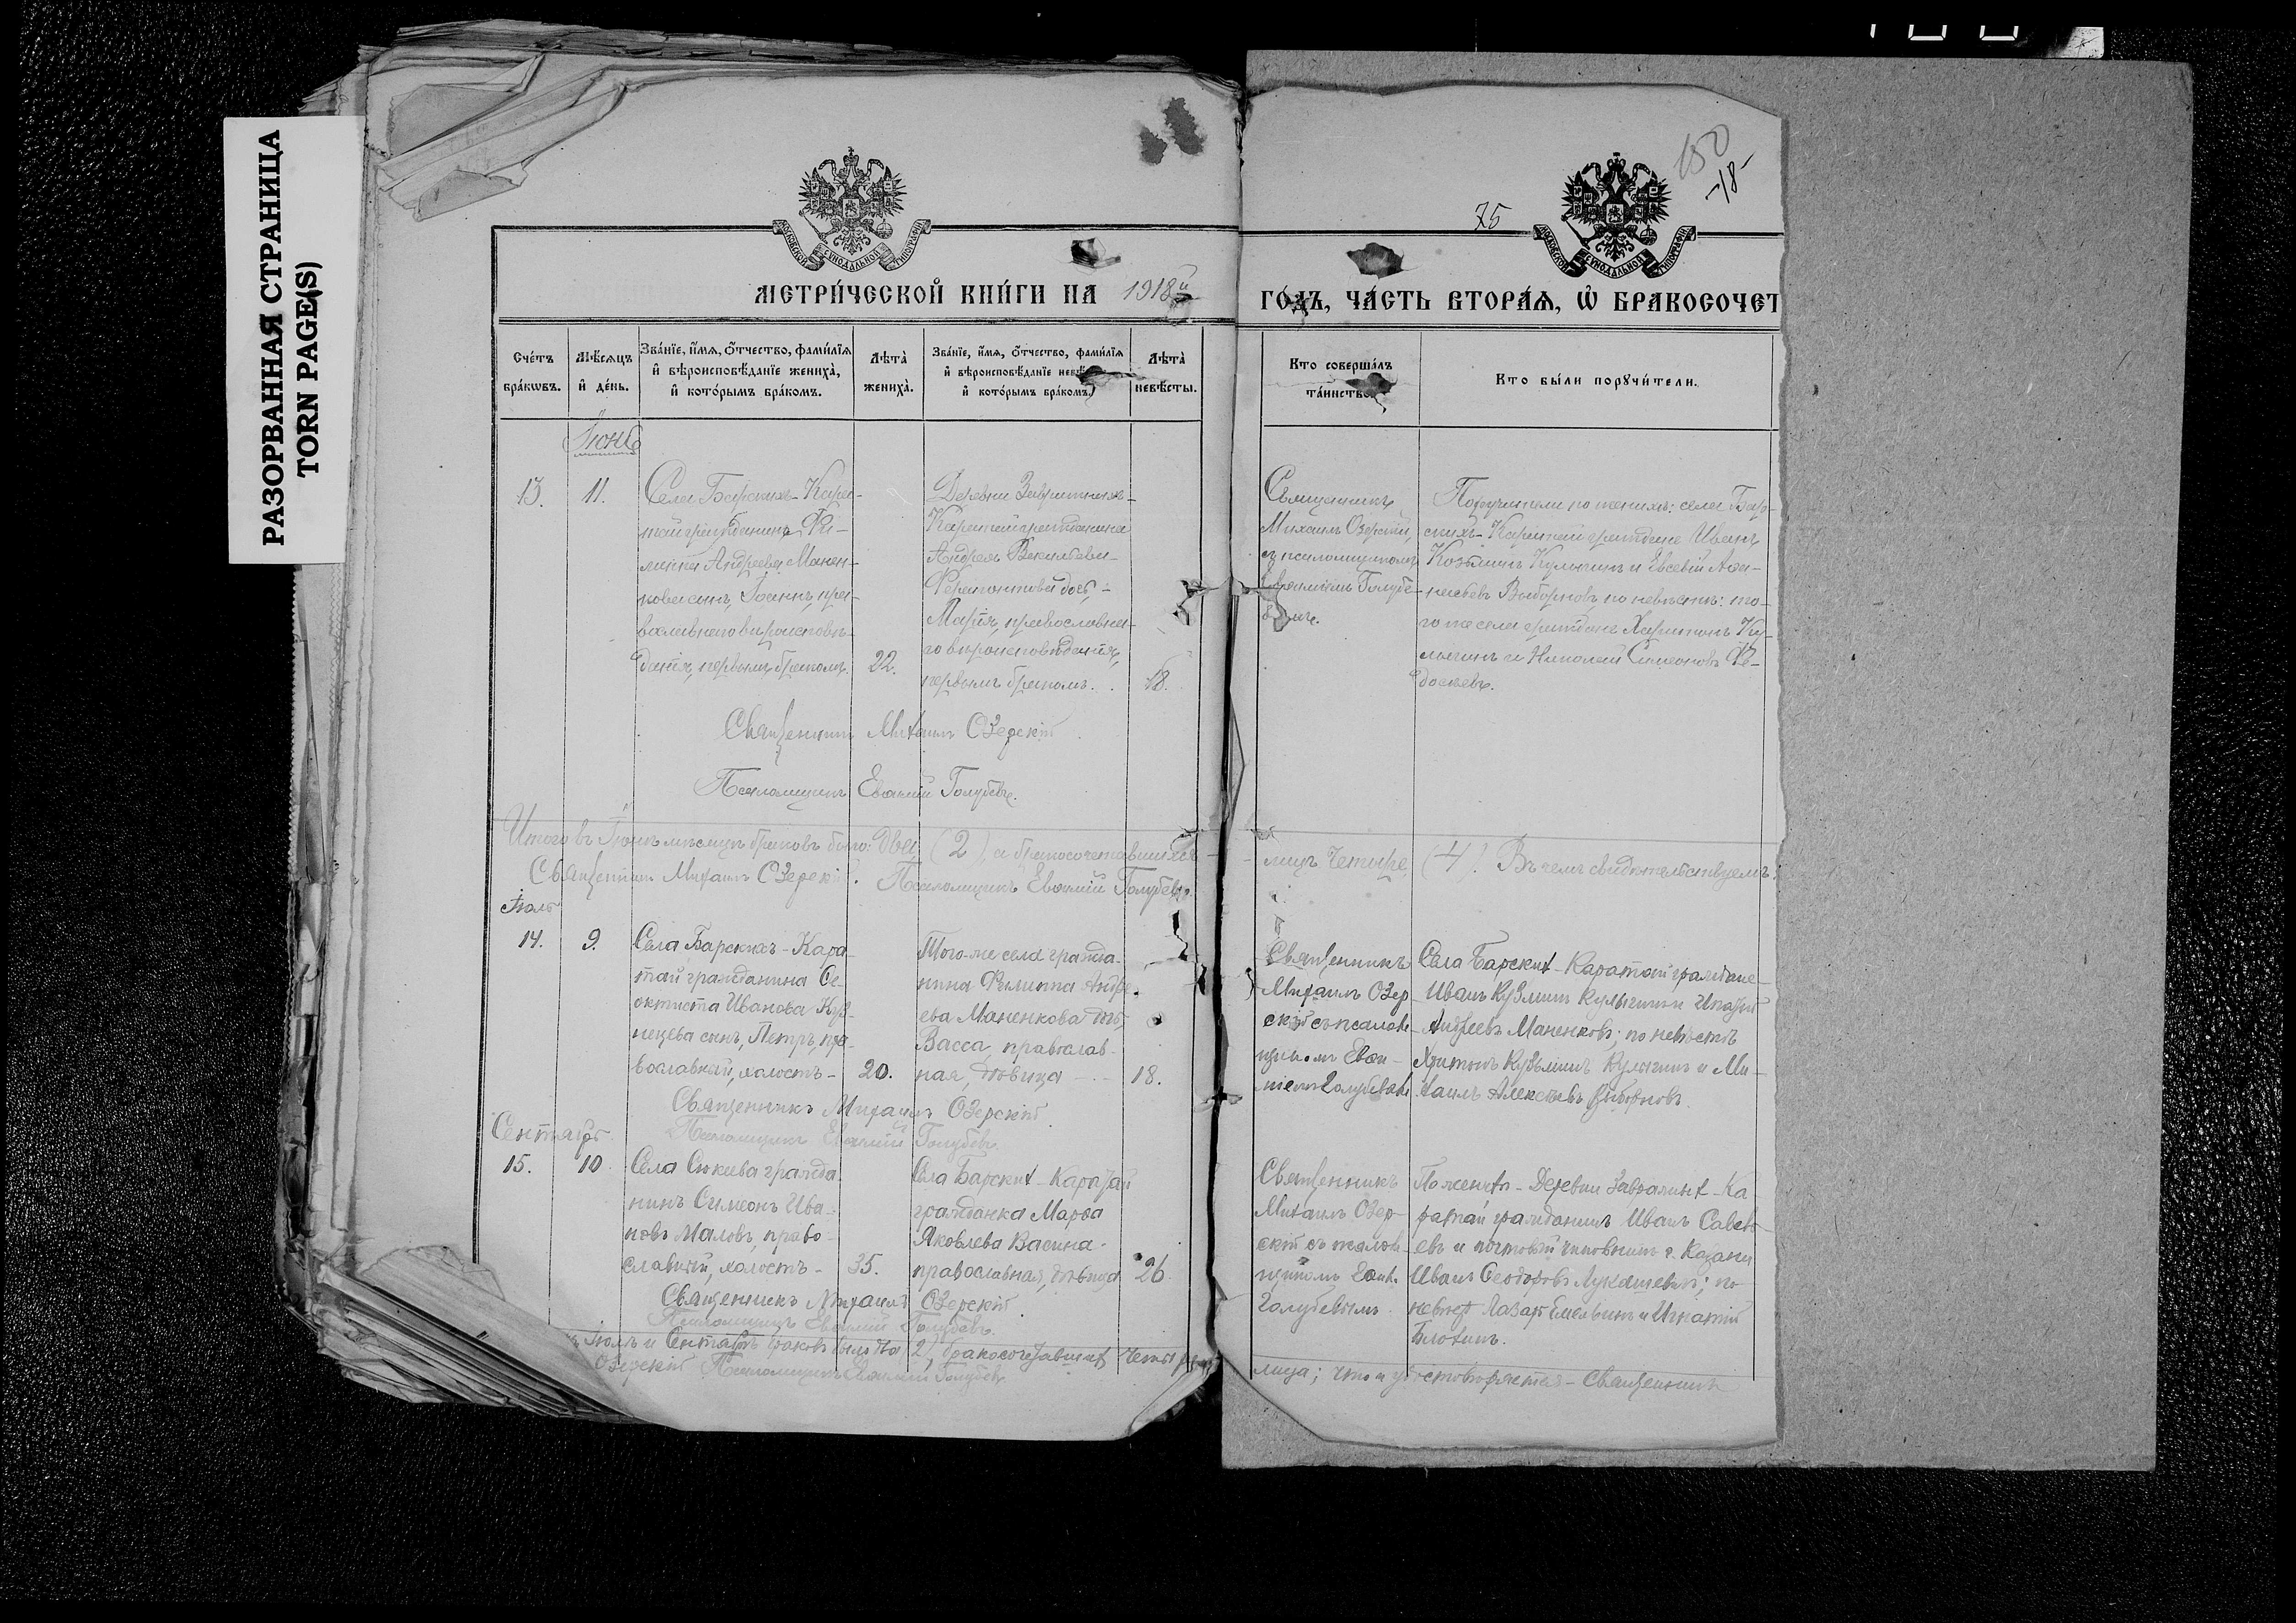 РАЗОРВАННАЯ СТРАНИЦА
TORN PAGE(S)
150
-18-
75
МОСКОВСКОЙ СѴНОДАЛЬНОЙ ТИПОГРАФІИ
МОСКОВСКОЙ СѴНОДАЛЬНОЙ ТИПОГРАФІИ
МЕТРИ́ЧЕСКОЙ КНИ́ГИ НА 1918й
ГО́ДЪ, ЧА́СТЬ ВТОРА́Ѧ, Ѽ БРАКОСОЧЕТ
Сче́тъ бра́кѡвъ.
Мѣ́сѧцъ и҆ де́нь.
Зва́нїе, и҆́мѧ, о҆́тчество, фами́лїѧ
и҆ вѣроисповѣ́данїе жениха̀,
и҆ кото́рымъ бра́комъ.
Лѣта̀ жениха̀.
Зва́нїе, и҆́мѧ, о҆́тчество, фами́лїѧ
и҆ вѣроисповѣ́данїе
и҆ кото́рымъ бра́комъ.
Лѣта̀ невѣ́сты.
Кто соверша́лъ
та́инство
Кто бы́ли порꙋчи́тели.
Іюнь
13.
11.
Села Барскихъ-Кара-
тай гражданина Фи-
липпа Андреева Манен-
кова сынъ, Іоаннъ, пра-
вославнаго вѣроисповѣ-
данія, первымъ бракомъ.
22.
Деревни
Каратай гражданина
Андрея
дочь,
Марія, православна-
го вѣроисповѣданія,
первымъ бракомъ.
18.
Священникъ
Михаилъ Озерскій,
съ псаломщикомъ
Евѳиміемъ Голубе-
вымъ.
Поручители по женихѣ: села Бар-
скихъ-Каратай граждане Иванъ
Козьминъ Кулыгинъ и Евсевій Аѳа-
насьевъ Выборновъ по невѣстѣ: то-
го же села граждане Харитонъ Ку-
лыгинъ и Николай Симеоновъ Ѳе-
досѣевъ.
Священникъ Михаилъ Озерскій
Псаломщикъ Евѳимій Голубевъ.
Итого въ Іюнѣ мѣсяцѣ браковъ было: два (2), а бракосочетавшихся
лицъ четыре (4). Въ чемъ свидѣтельствуемъ:
Священникъ Михаилъ Озерскій. Псаломщикъ Евѳимій Голубевъ.
Іюль
14.
9.
Села Барскихъ-Кара-
тай гражданина Ѳе-
октиста Иванова Куз-
нецова сынъ, Петръ, пра-
вославный, холостъ-
20.
Того-же села гражда-
нина Филиппа Андре-
ева Маненкова дочь,
Васса, православ-
ная, дѣвица
18.
Священникъ
Михаилъ Озер-
скій съ псалом-
щикомъ Евѳи-
міемъ Голубевымъ
Села Барскихъ-Каратай граждане-
Иванъ Кузьминъ Кулыгинъ и
Андреевъ Маненковъ; по невѣстѣ
Харитонъ Кузьминъ Кулыгинъ и Ми-
хаилъ Алексѣевъ Выборновъ.
Священникъ Михаилъ Озерскій.
Псаломщикъ Евѳимій Голубевъ.
Сентябрь
15.
10
Села Сюкеева гражда-
нинъ Симеонъ Ива-
новъ Маловъ, право-
славный, холостъ-
35.
Села Барскихъ-Каратай
гражданка Марѳа
Яковлева Васина-
православная, дѣвица
26.
Священникъ
Михаилъ Озер-
скій съ псалом-
щикомъ Евѳим.
Голубевымъ.
По женихѣ-Деревни Ка-
ратай гражданинъ Иванъ
евъ и почтовый чиновникъ г. Казани
Иванъ Ѳеодоровъ Лукашевичъ; по
невѣстѣ и Игнатій
Священникъ Михаилъ Озерскій.
Псаломщикъ Евѳимій Голубевъ.
Іюлѣ и Сентябрѣ браковъ было два (2), бракосочетавшихся четыре
лица; что и удостовѣряется-Священникъ
Озерскій Псаломщикъ Евѳимій Голубевъ